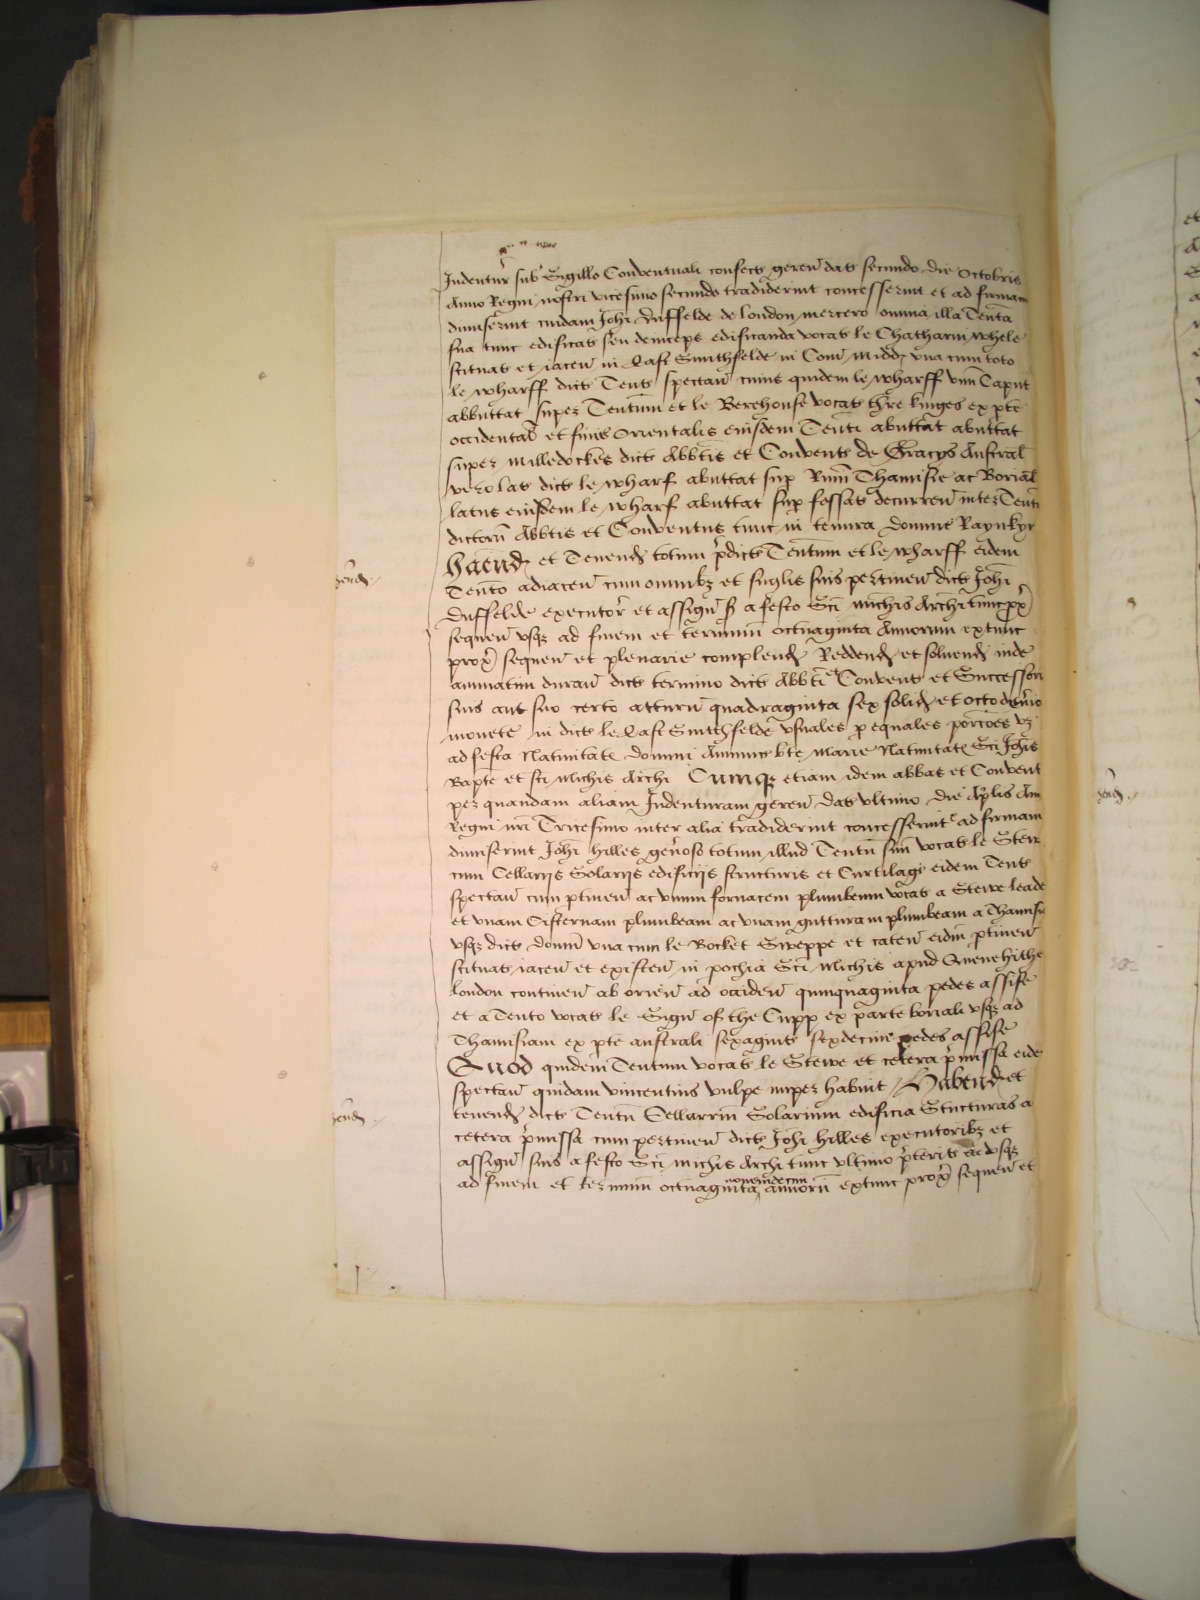 Indentur sub Sigillo Conventuali confect geren dat secundo die Octobris
Anno Regni nostri vicesimo secundo tradiderint concesserint et ad firmam
dimiserint cuidam Johi Duffelde de london mercero omnia illa Tenta
sua tunc edificat seu deinceps edificanda vocat le Chatharin whele
scituat et iacen in East Smithfelde in Com Midd una cum toto
le wharff dict Tent spectan cuius quidem le wharff unu Caput
abbuttat super Tentum et le Berehouse vocat thre kinges ex pte
occidental et finis Orientalis eiusdem Tenti abuttat abuttat
super Milledockes dict Abbtis et Convent de Gracys Austral
vero lat dict le wharf abuttat sup Rivm Thamisie ac Borial
latus eiusdem le wharf abuttat sup fossat decurren inter Tent
dictoru Abbtis et Conventus tunc in tenura Domine Raynkyr
haend et Tenend totum pdict Tentum et le wharff eidem
Tento adiacen cum omnibz et singlis suis pertinen dict Johi
Duffelde executor et assign s a festo Sci Michis Archi tunc prox
sequen usqz ad finem et terminu octuaginta Annorum extunc
prox sequen et plenarie complend Reddend et solvend inde
annuatim duran dict termino dict Abbti et Convent et Successori
suis aut suo certo atturn quadraginta sex solid et octo denario
monete in dict le East Smithfelde usuales p equales porcoes vz
ad festa Natiuitat Domini Annunc bte Marie Natiuitat Sci Johis
Bapte et sci Michis Archi Cumqz etiam idem abbas et Convent
per quandam aliam Indenturam geren dat ultimo die Aplis An
Regni nri Tricesimo inter alia tradiderint concesserint et ad firmam
dimiserint Johi hilles generoso totum illud Tentu suu vocat le Stew
cum Cellariis Solariis edificiis structuris et Curtilag eidem Tent
spectan cum ptinen ac unum fornacem plumbeum vocat a Stewe leade
et unam Cisternam plumbeam ac unam gutturam plumbeam a Thamisi
usqz dict domu una cum le Bocket Sweppe et caten eidm ptinen
scituat iacen et existen in pochia Sci Michis apud Quenehithe
london continen ab orien ad occiden quinquaginta pedes assise
et a Tento vocat le Sign of the Cupp ex parte boriali usqz ad
Thamisiam ex pte australi sexagint sexdecim pedes assise
Quod quidem Tentum vocat le Stewe et cetera pmissa eide
spectan quidam vincentius vulpe nuper habuit Habend et
tenend dict Tentu Cellarium Solarium edificia Structuras a
cetera pmissa cum pertinen dict Johi hilles executoribz et
assign suis a festo Sci Michis Archi tunc ultimo pterit ac usqz
ad finem et terminu octuaginta novemdecim annoru extunc prox sequen et